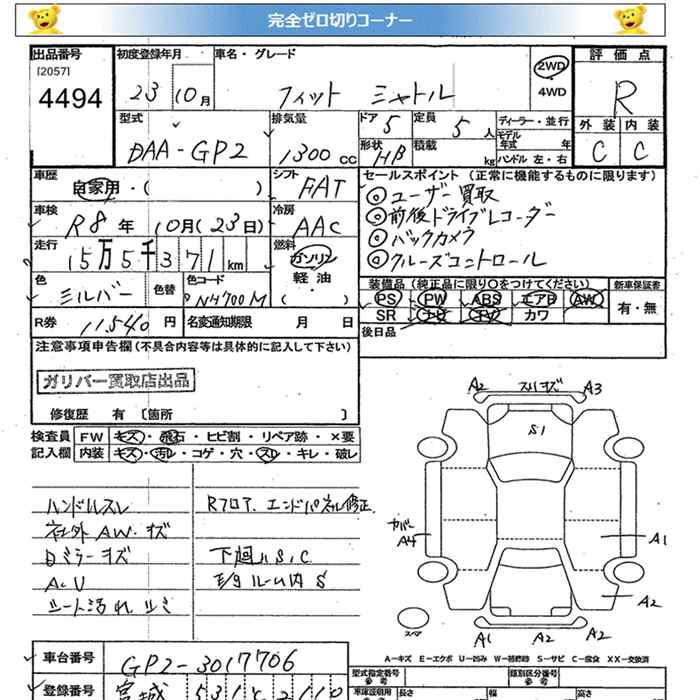 完全ゼロ切りコーナー
出品番号 初度登録年月 車名・グレード 2WD 4WD 評価点
[2057]
4494
23 10月 フィット シャトル R
型式 排気量 ドア 5 定員 5人 ディーラー・並行 外装 内装
DAA-GP2 1300cc 形状 HB 積載 kg モデル年式 年 ハンドル 左・右 C C
車歴 自家用・( ) シフト FAT
セールスポイント (正常に機能するものに限ります)
◎ユーザー買取
◎前後ドライブレコーダー
◎バックカメラ
◎クルーズコントロール
車検 R8年 10月(23日) 冷房 AAC
走行 15万5千371km 燃料 ガソリン 軽油 ( )
色 シルバー 色替 色コード NH700M
装備品 (純品に限り○をつけてください) 新車保証書
PS PW ABS エアB AW 有・無
SR ナビ TV カワ
R券 11,540円 名変通知期限 月 日 後日品
注意事項申告欄 (不具合内容等は具体的に記入して下さい)
ガリバー買取店出品
修復歴 有 [箇所 ]
検査員 FW キズ・飛石・ヒビ割・リペア跡・×要
記入欄 内装 キズ・汚レ・コゲ・穴・スレ・キレ・破レ
ハンドルスレ Rフロア、エンドパネル修正
社外AW・キズ
ミラーキズ 下廻りS.C
A.U E/gルーム内S
シート汚れ シミ
A2 スリキズ A3
S1
カバー A4 A1
A2
スペア A1 A2 A2
A-キズ E-エクボ U-凹み W-補修跡 S-サビ C-腐食 XX-交換済
車台番号 GP2-3017706
登録番号 宮城 531 2110
型式指定番号 類別区分番号
参考 長さ 幅 高さ